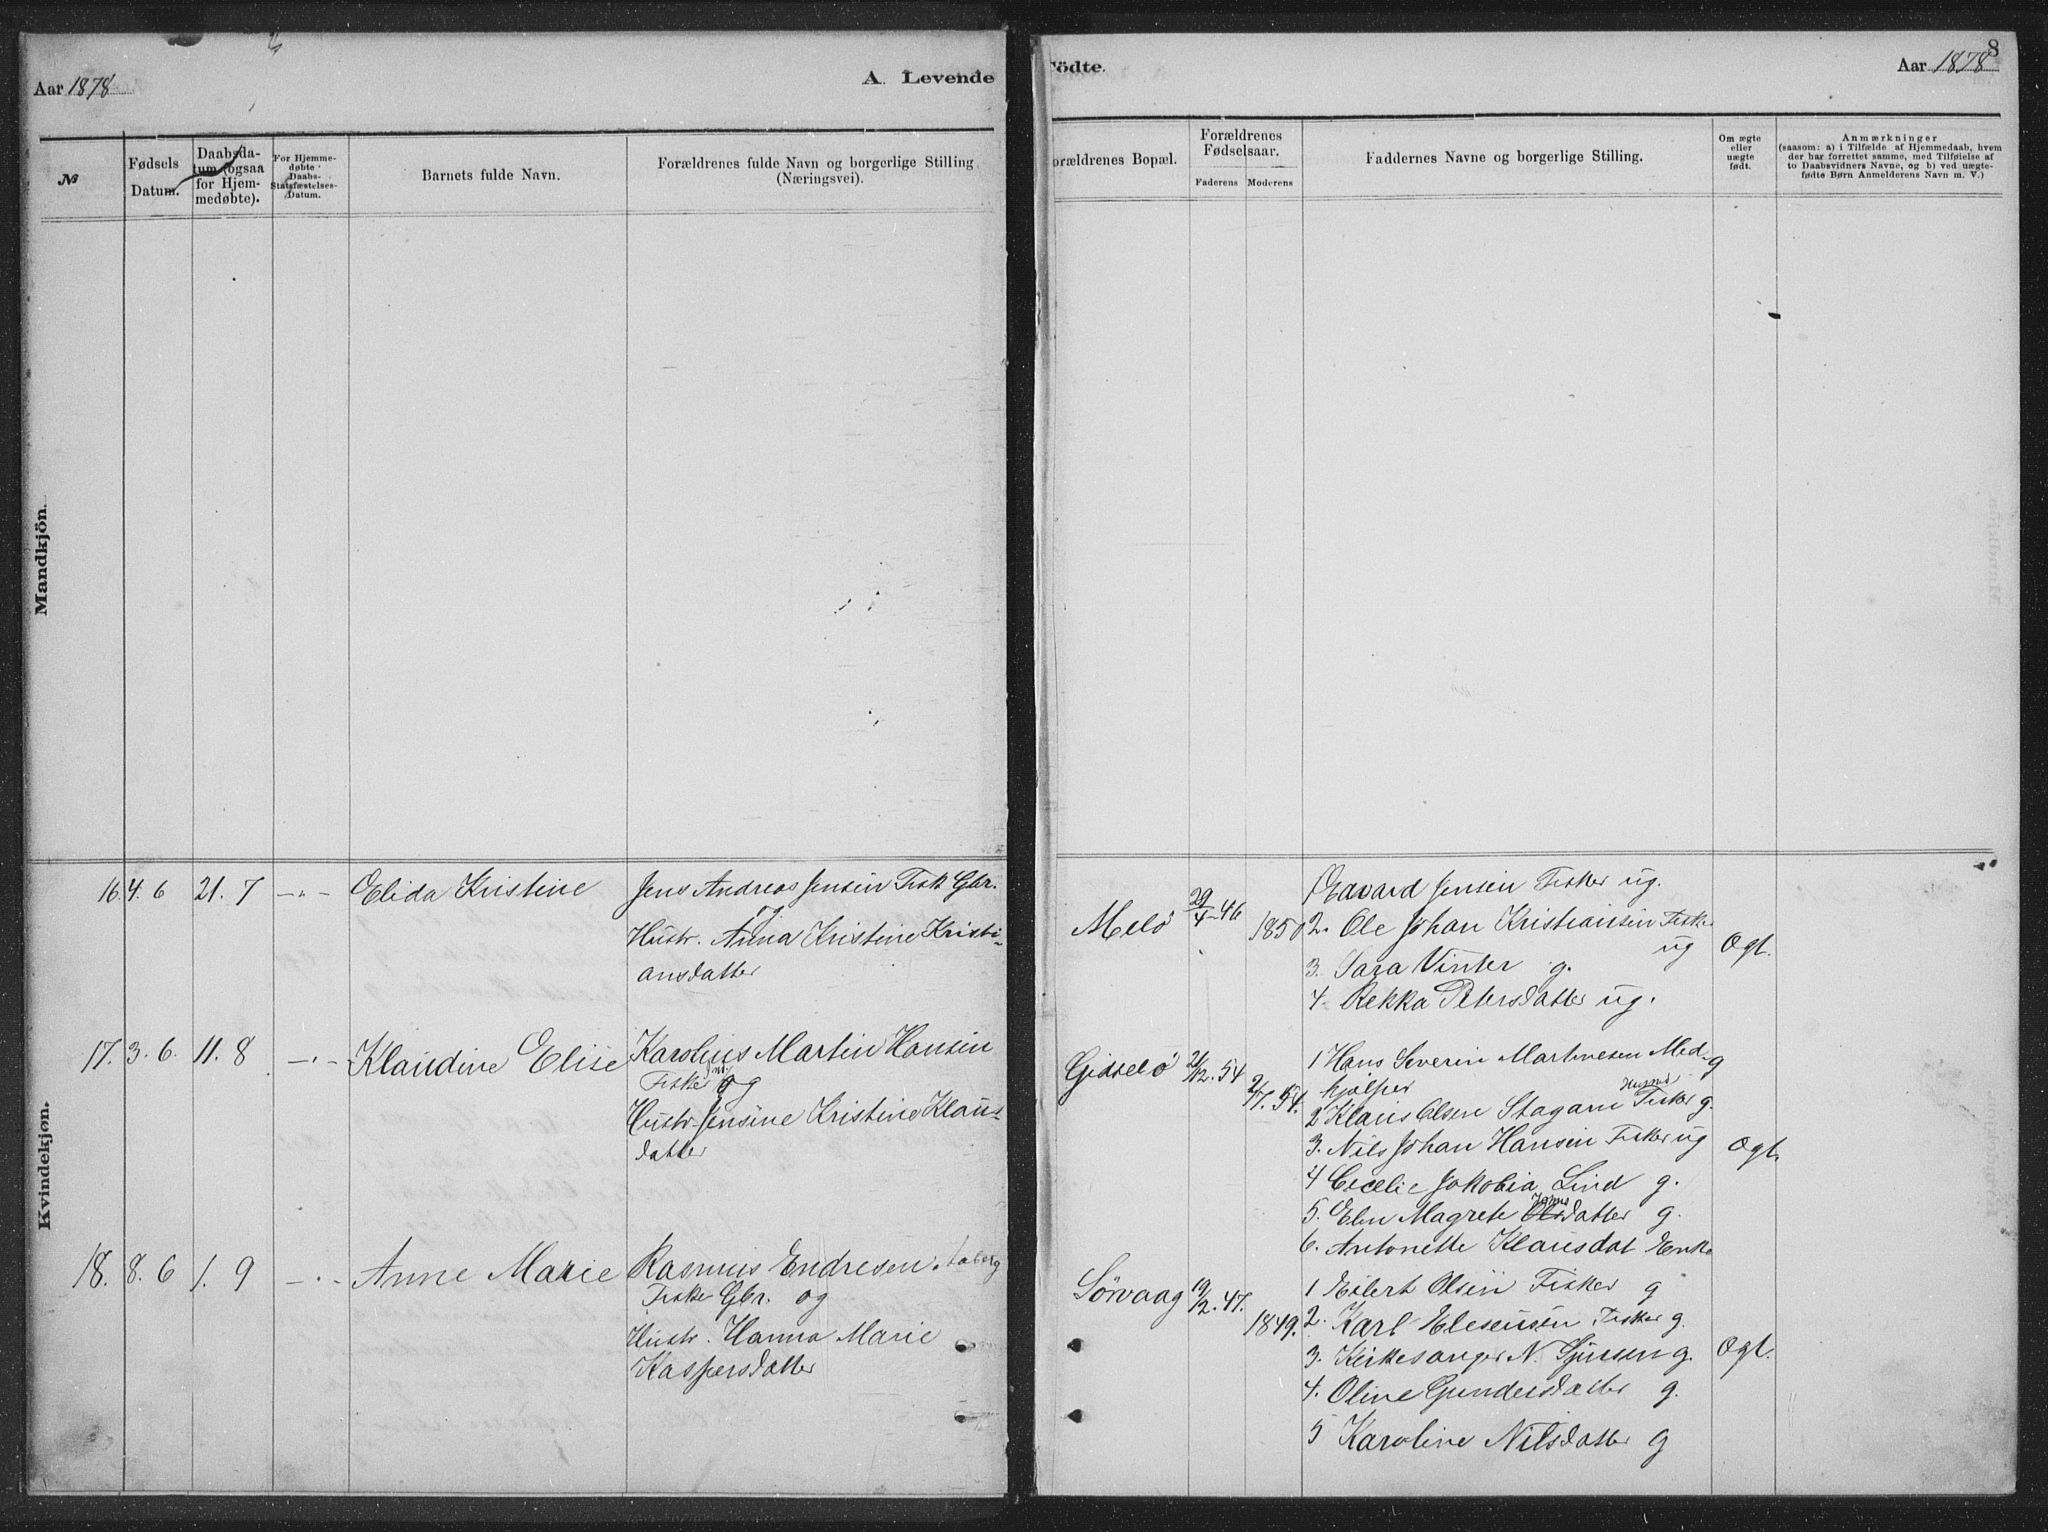 Aar 1878
A. Levende
Födte.
Aar 1878
8
№
Fødsels Datum.
Daabsdatum (ogsaa for Hjemmedøbte).
For Hjemmedøbte Daabs-Statsfæstelses-Datum.
Barnets fulde Navn.
Forældrenes fulde Navn og borgerlige Stilling (Næringsvei).
Forældrenes Bopæl.
Forældrenes Fødselsaar.
Faderens
Moderens
Faddernes Navne og borgerlige Stilling.
Om ægte eller uægte født.
Anmærkninger
(saasom: a) i Tilfælde af Hjemmedaab, hvem
der har forrettet samme, med Tilføielse af
to Daabsvidners Navne, og b) ved uægte-
fødte Børn Anmelderens Navn m. V.)
Mandkjön.
Kvindekjøn.
16 4. 6 21. 7 -"- Elida Kristine
Jens Andreas Jensen Fisk. Gbr.
og
Hustr. Anna Kristine Kristi-
ansdatter
Melø 29/4-46
1850
1 Edvard Jensen Fisker ug.
2. Ole Johan Kristiansen Fisker
ug
3. Sara Vinter g.
4 Rekka Petersdatter ug.
Ægt.
17. 3. 6. 11. 8 -"- Klaudine Elise
Karolius Martin Hansen
Fisker og
Hustr. Jensine Kristine Klaus-
datter
Gidselø 21/12. 54
2/7. 54.
1 Hans Severin Martinesen Med-
hjælper g
2 Klaus Olsen Stagam Husmd Fisker g.
3. Nils Johan Hansen Fisker ug
4 Cecelie Jakobia Lind g.
5. Elen Magrete Jonsdatter g.
6. Antonette Klausdat Enke
Ægt.
18. 8. 6 1. 9 -"- Anne Marie
Rasmus Endresen Aaberg
Fisker Gbr. og
Hustr. Hanna Marie
Kaspersdatter
Sørvaag 19/12. 47.
1849.
1 Eilert Olsen Fisker g
2. Karl Elesensen Fisker g.
3. Kirkesanger N. Sjursen g.
4. Oline Gundersdatter g.
5 Karoline Nilsdatter g
Ægt.